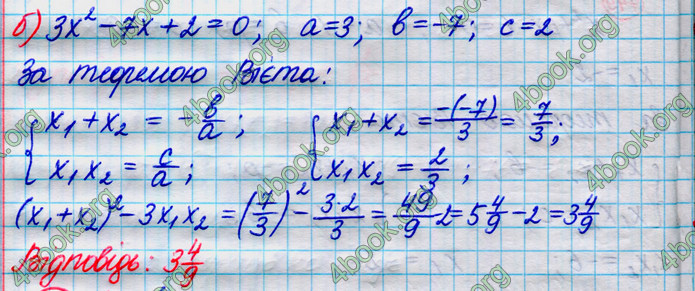 б) 3x² - 7x + 2 = 0; a = 3; в = -7; c = 2
За теоремою Вієта:
{ x₁ + x₂ = - в/a; { x₁ + x₂ = -(-7)/3 = 7/3;
{ x₁ x₂ = c/a; { x₁ x₂ = 2/3;
(x₁ + x₂)² - 3x₁x₂ = (7/3)² - 3·2/3 = 49/9 - 2 = 5 4/9 - 2 = 3 4/9
Відповідь: 3 4/9
4book.org